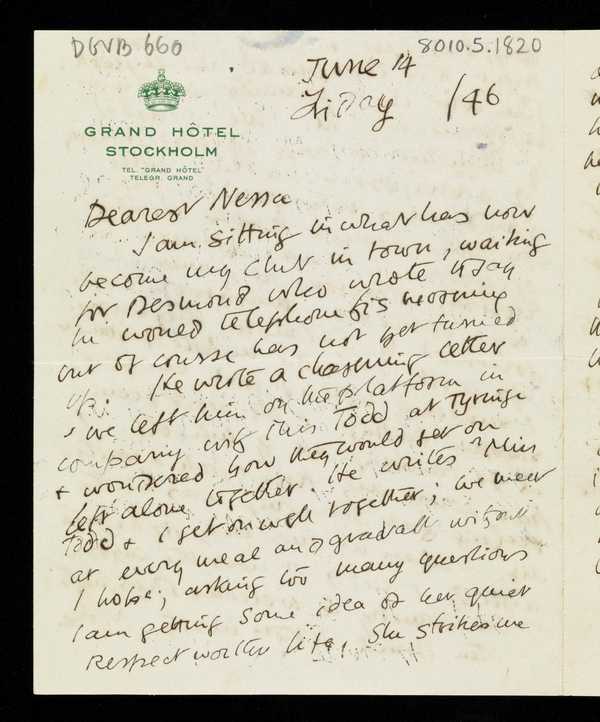 DGVB 660
8010.5.1820
June 14
Friday /46
GRAND HÔTEL
STOCKHOLM
TEL. "GRAND HÔTEL"
TELEGR. GRAND
Dearest Nessa
I am sitting in what has now
become my club in town, waiting
for Desmond who wrote to say
he would telephone this morning
but of course has not yet turned
up. He wrote a charming letter
we left him on the platform in
company with Miss Todd at Tyringe
& wondered how they would get on
left alone together. He writes "Miss
Todd & I get on well together; we meet
at every meal and gradually without
I hope, asking too many questions
I am getting some idea of her quiet
respect worthy life, She strikes me